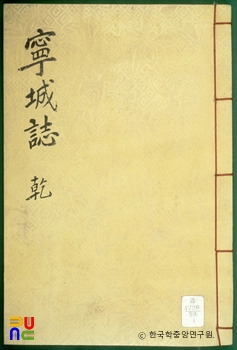 寧城誌
乾
© 한국학중앙연구원